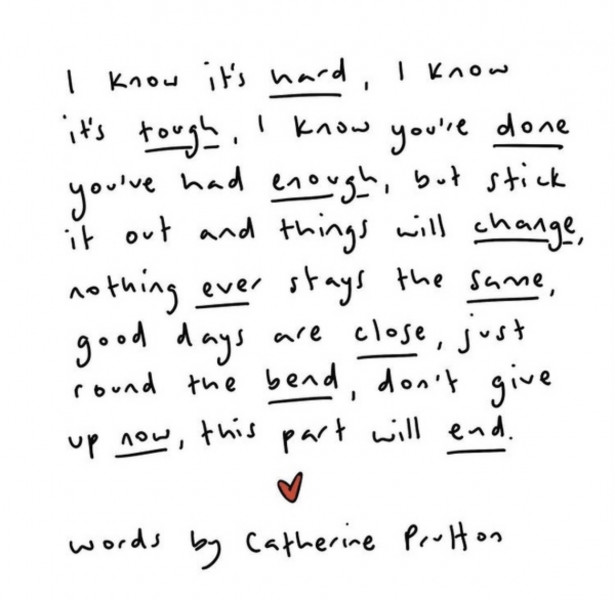 I know it's hard, I know
it's tough, I know you're done
you've had enough, but stick
it out and things will change,
nothing ever stays the same,
good days are close, just
round the bend, don't give
up now, this part will end.
words by Catherine Prutton